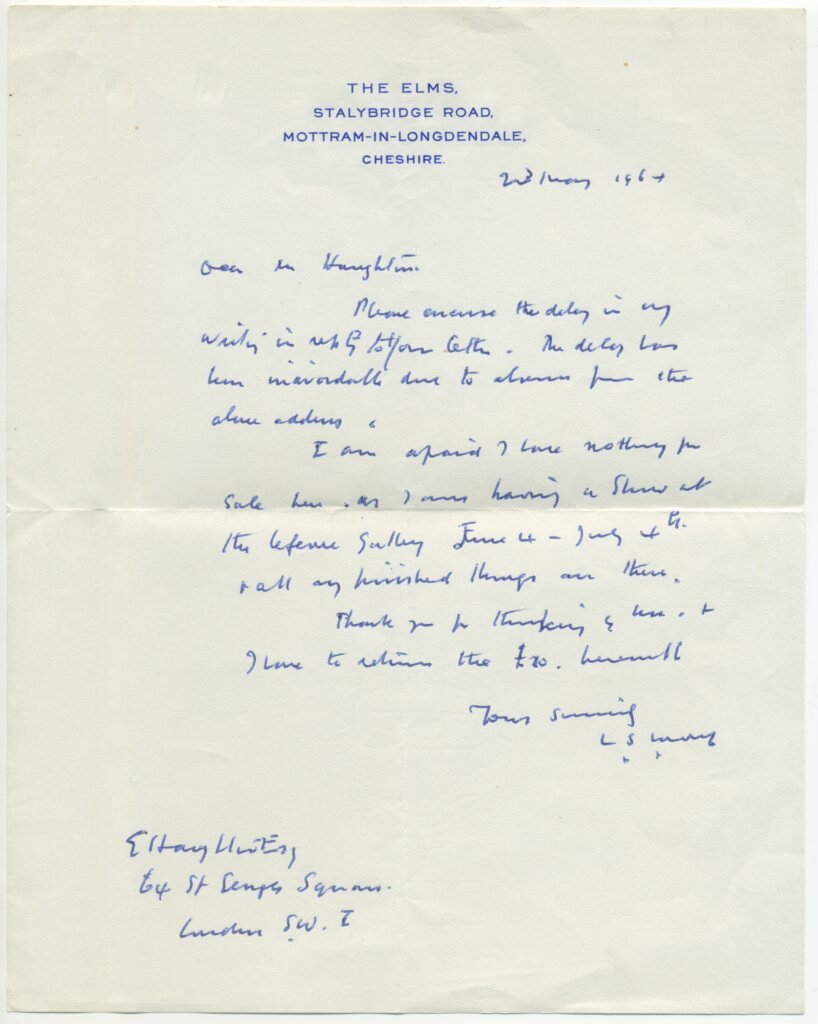 THE ELMS,
STALYBRIDGE ROAD,
MOTTRAM-IN-LONGDENDALE,
CHESHIRE.
May 1964
Dear Mr Haughton.
Please excuse the delay in my
writing in reply to your letter. The delay has
been unavoidable due to absence from the
above address.
I am afraid I have nothing for
sale here. as I am having a Show at
the Lefevre Gallery June 4 - July 4th.
+ all my finished things are there.
Thank you for thinking of me. +
I have to return the herewith
Yours sincerely
L S Lowry
E Haughton Esq
64 St Georges Square.
London SW. 1